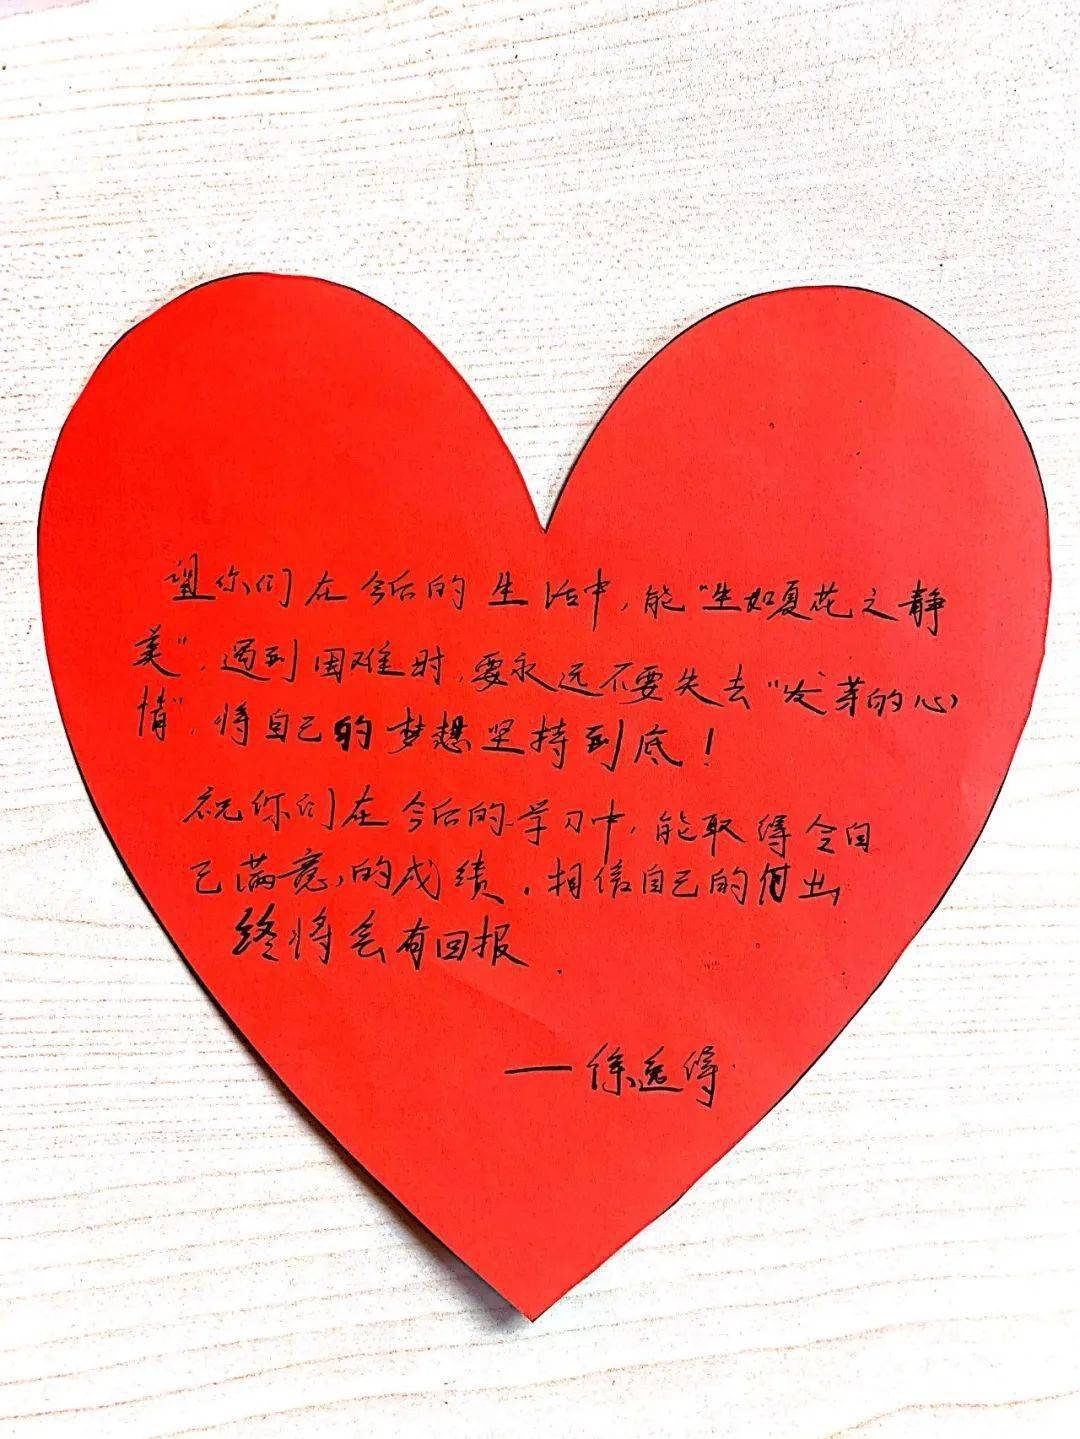 望你们在今后的生活中，能“生如夏花之静
美”，遇到困难时，要永远不要失去“发芽的心
情”，将自己的梦想坚持到底！
祝你们在今后的学习中，能取得令自
己满意的成绩，相信自己的付出
终将会有回报
——徐 得